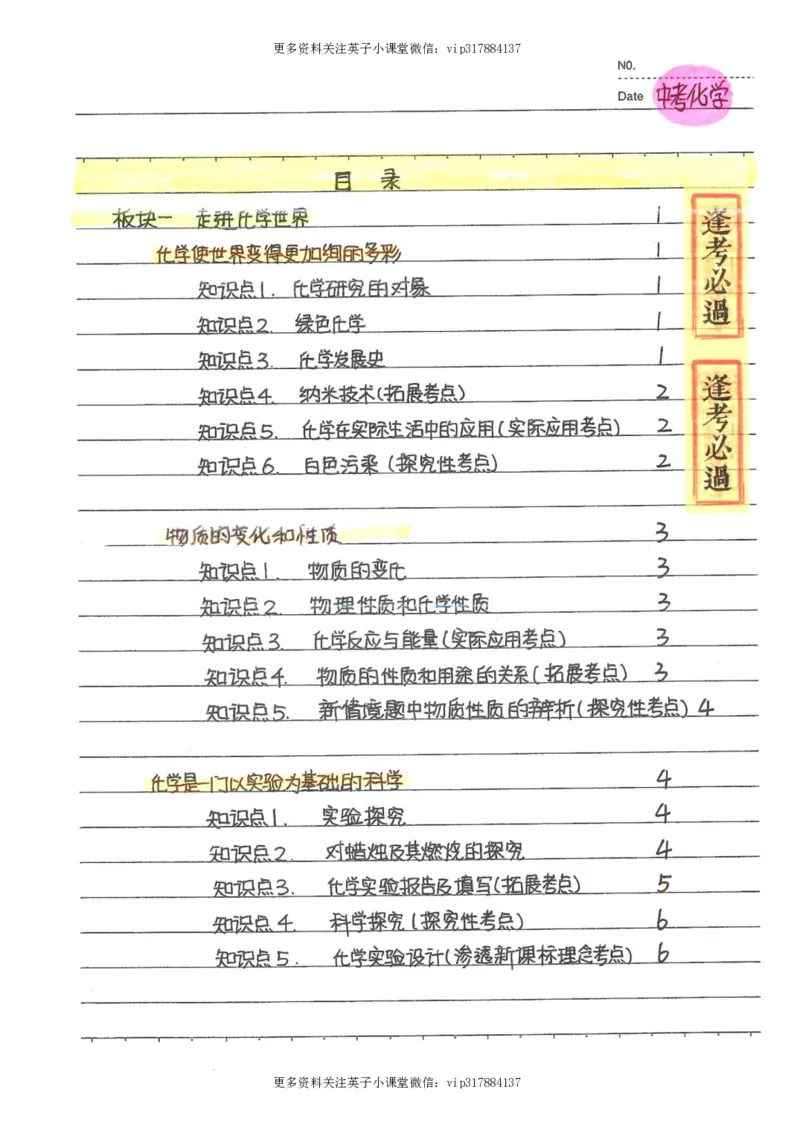 更多资料关注英子小课堂微信：vip317884137
NO.
Date 中考化学
目 录
板块一 走进化学世界 1
化学使世界变得更加绚丽多彩 1
知识点1. 化学研究的对象 1
知识点2. 绿色化学 1
知识点3. 化学发展史 1
知识点4. 纳米技术(拓展考点) 2
知识点5. 化学在实际生活中的应用(实际应用考点) 2
知识点6. 白色污染(探究性考点) 2
逢考必過
逢考必過
物质的变化和性质 3
知识点1. 物质的变化 3
知识点2. 物理性质和化学性质 3
知识点3. 化学反应与能量(实际应用考点) 3
知识点4. 物质的性质和用途的关系(拓展考点) 3
知识点5. 新情境题中物质性质的辨析(探究性考点) 4
化学是一门以实验为基础的科学 4
知识点1. 实验探究 4
知识点2. 对蜡烛及其燃烧的探究 4
知识点3. 化学实验报告及填写(拓展考点) 5
知识点4. 科学探究(探究性考点) 6
知识点5. 化学实验设计(渗透新课标理念考点) 6
更多资料关注英子小课堂微信：vip317884137